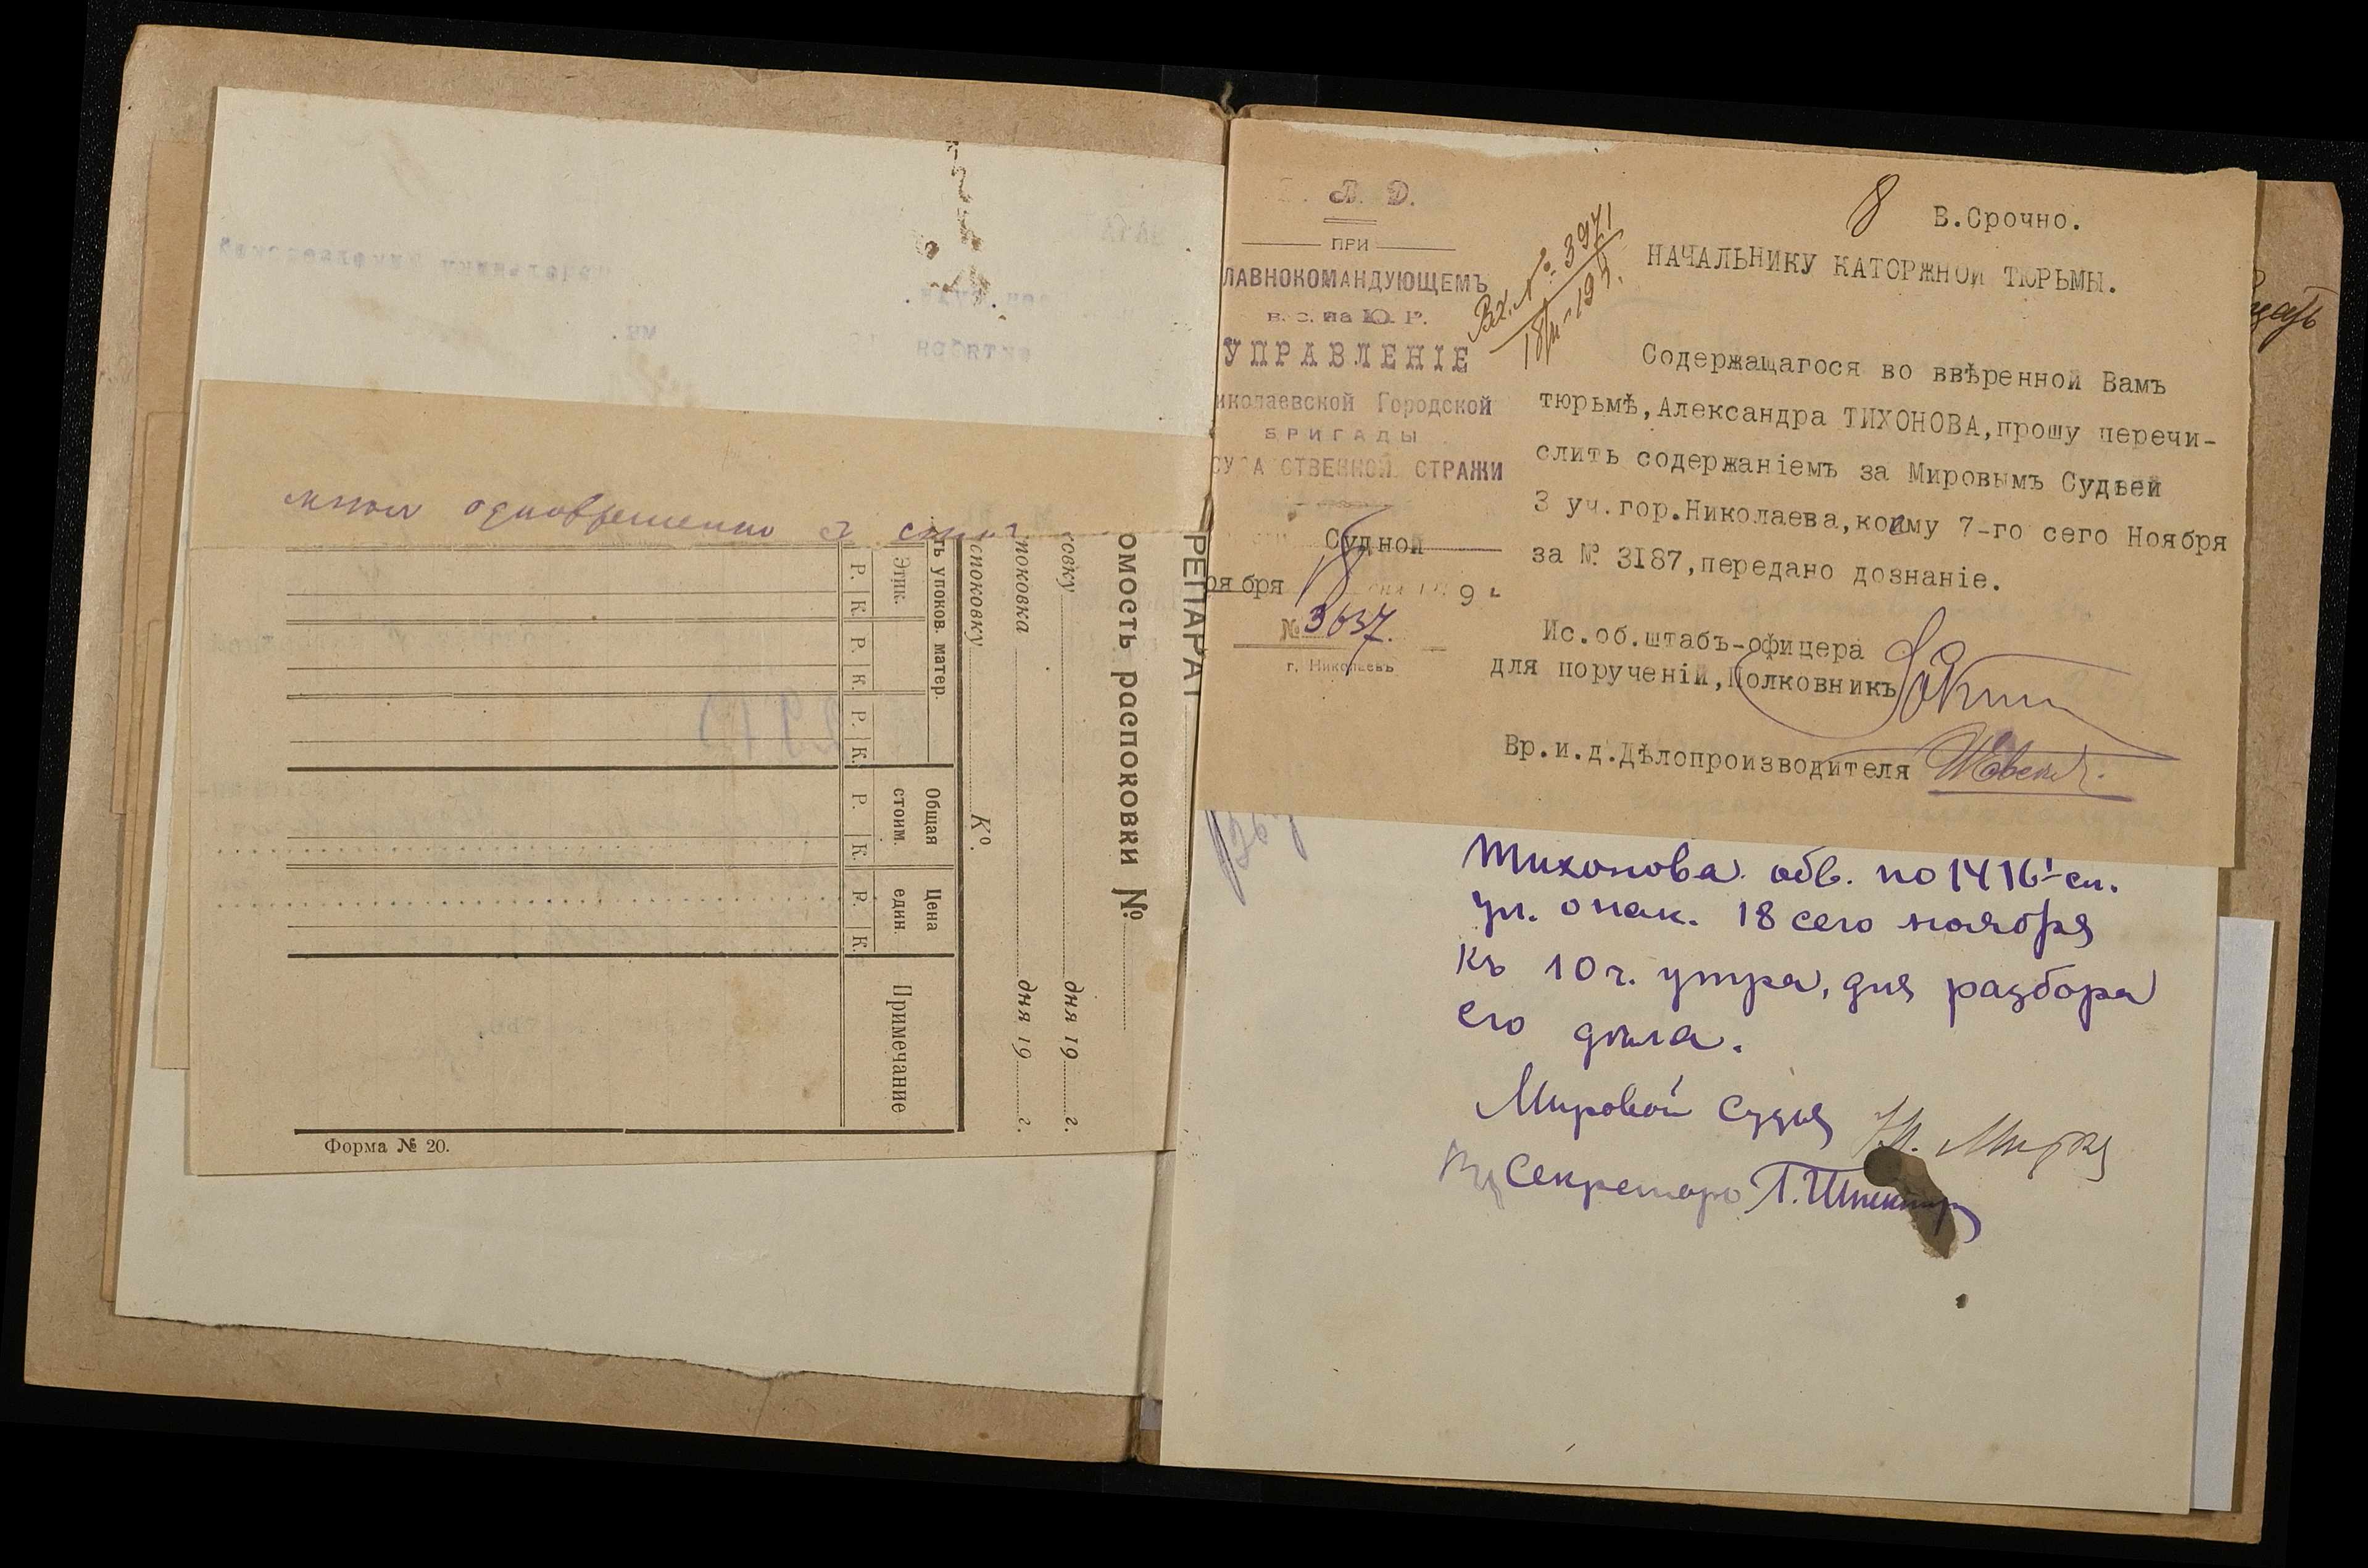 одновременно з
РЕПАРАТ
омость распоковки №
овку дня 19 г.
поковка дня 19 г.
споковку К⁰.
ть упоков. матер.
Этик.
Общая стоим.
Цена един.
Примечание
Р. К. Р. К. Р. К. Р. К. Р. К.
Форма № 20.
В. Д.
ПРИ
ЛАВНОКОМАНДУЮЩЕМЪ
в. с. на Ю. Р.
УПРАВЛЕНІЕ
иколаевской Городской
БРИГАДЫ
СУДА СТВЕННОЙ СТРАЖИ
Судной
ября 18 9
№ 3637.
г. Николаевъ
Вх. № 3971
8
В.Срочно.
НАЧАЛЬНИКУ КАТОРЖНОЙ ТЮРЬМЫ.
Содержащагося во ввѣренной Вамъ
тюрьмѣ,Александра ТИХОНОВА,прошу перечи-
слить содержаніемъ за Мировымъ Судьей
3 уч.гор.Николаева,коему 7-го сего Ноября
за № 3187,передано дознаніе.
Ис.об.штабъ-офицера
для порученій,Полковникъ
Вр.и.д.Дѣлопроизводителя
Тихонова обв. по 1416¹ ст.
ул. о нак. 18 сего ноября
къ 10 ч. утра, для разбора
его дѣла.
Мировой Судья
Секретарь